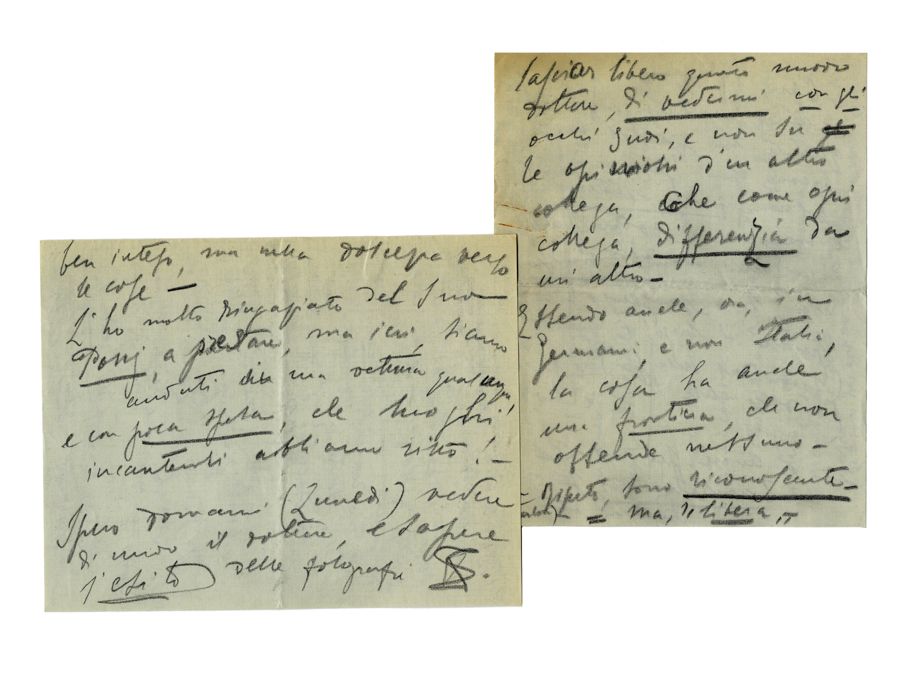 ben inteso, ma nella dolcezza verso
le cose —
L'ho molto ringraziato del Suo
Possj, a prestare, ma ieri, siamo
andati una vettura qualunque
e con poca spesa, che luoghi
incantevoli abbiamo visto! —
Spero domani (Lunedì) vedere
di nuovo il dottore, e sapere
l'esito delle fotografie
lasciar libero questo nuovo
dottore, di vedermi con gli
occhi Suoi, e non su
le opinioni d'un altro
collega, che come ogni
collega, differenzia da
un altro —
Essendo anche, ora, in
Germania, e non Italia,
la cosa ha anche
una frontiera, che non
offende nessuno —
Ripeto, sono riconoscente —
— ma, "libera"